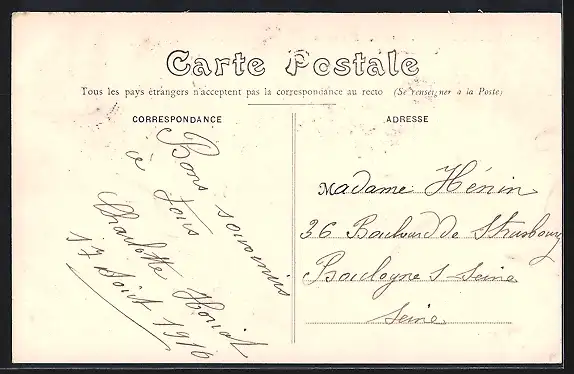 Carte Postale
Tous les pays étrangers n'acceptent pas la correspondance au recto (Se renseigner à la Poste)
CORRESPONDANCE
Bons souvenirs
à tous
Charlotte
17 Août 1916
ADRESSE
Madame Hénin
36 Boulevard de Strasbourg
Boulogne s Seine
Seine